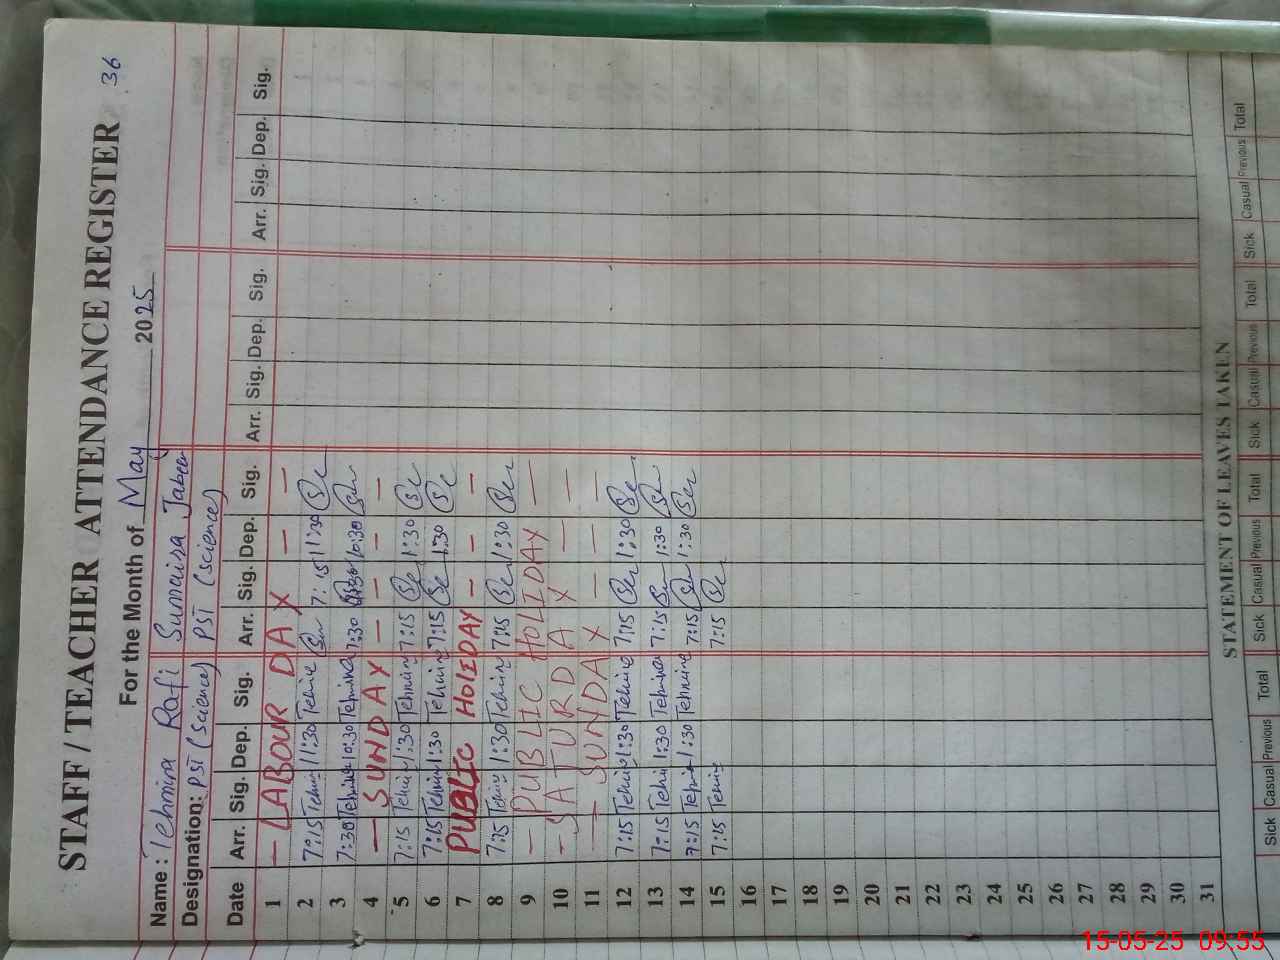 36
STAFF / TEACHER ATTENDANCE REGISTER
For the Month of May 2025
Name : Tehmina Rafi Sumaira Jabeen
Designation: PST (Science) PST (Science)
Date Arr. Sig. Dep. Sig. Arr. Sig. Dep. Sig. Arr. Sig. Dep. Sig. Arr. Sig. Dep. Sig.
1 — LABOUR DAY — —
2 7:15 11:30 7:15 11:30
3 7:30 Tehmina 10:30 Tehmina 7:30 10:30
4 — SUNDAY — — — —
5 7:15 1:30 7:15 1:30
6 7:15 1:30 7:15 1:30
7 PUBLIC HOLIDAY — — —
8 7:15 1:30 7:15 1:30
9 — PUBLIC HOLIDAY —
10 — SATURDAY — —
11 — SUNDAY — — —
12 7:15 1:30 7:15 1:30
13 7:15 1:30 Tehmina 7:15 1:30
14 7:15 1:30 7:15 1:30
15 7:15 7:15
16
17
18
19
20
21
22
23
24
25
26
27
28
29
30
31
STATEMENT OF LEAVES TAKEN
Sick Casual Previous Total Sick Casual Previous Total Sick Casual Previous Total Sick Casual Previous Total
15-05-25 09:55